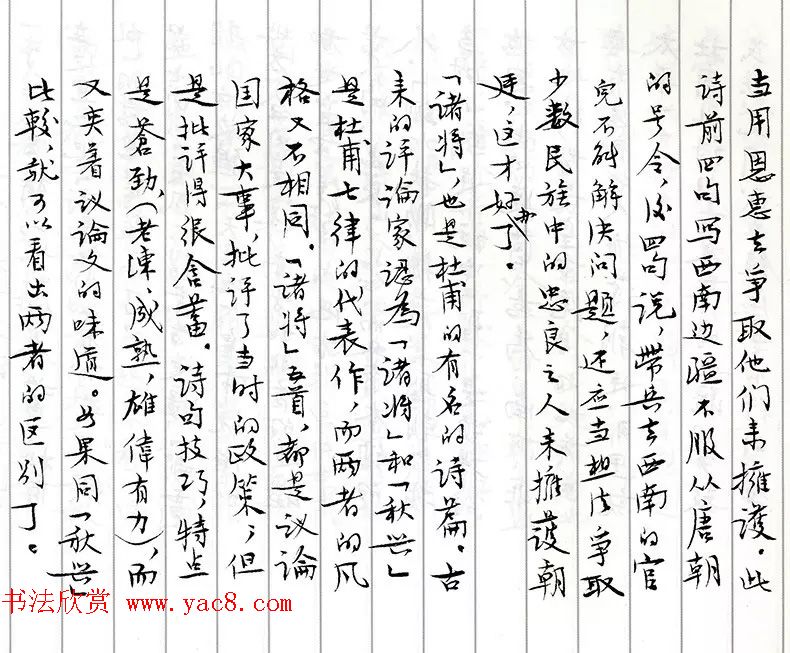 当用恩惠去争取他们来擁護。此
诗前四句写西南边疆不服从唐朝
的号令,后四句说,带兵去西南的官
究不能解决问题,还应当想法争取
少数民族中的忠良之人来擁護朝
廷,这才好办了。
「诸将」,也是杜甫的有名的诗篇。古
来的评论家認為「诸将」和「秋兴」
是杜甫七律的代表作,而两者的风
格又不相同。「诸将」五首,都是议论
国家大事,批评了当时的政策;但
是批评得很含蓄。诗句技巧,特点
是蒼劲,(老陳,成熟,雄偉有力),而
又夹着议论文的味道。如果同「秋兴」
比較,就可以看出两者的区别了。
书法欣赏 www.yac8.com